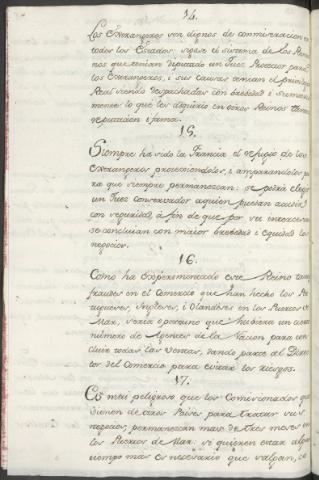 14.
Los Extrangeros son dignos de conmiseracion en
todos los Estados; sobre el sistema de los Rei-
nos que tenian diputado un Juez Protector para
los Extrangeros, i sus causas tenian el privilegio
Real siendo despachadas con brebedad i sumaria-
mente lo que les adquirio en otros Reinos
reputacion i fama.
15.
Siempre ha sido la Francia el refugio de los
extrangeros protexiendolos, i amparandolos pa-
ra que siempre permanezcan: se podria elegir
un Juez conservador aquien puedan acudir
con seguridad, a fin de que por su intercesion
se concluian con maior brebedad i equidad los
negocios.
16.
Como ha experimentado este Reino tantos
fraudes en el Comercio que han hecho los Por-
tugueses, Ingleses, i Olandeses en los Puertos de
Mar, seria oportuno que hubiera un cierto
número de Agentes de la Nacion para con-
cluir todas las ventas, dando parte al Direc-
tor del Comercio para evitar los riesgos.
17.
Es mui peligroso que los Comisionados que
vienen de otros Paises para tratar sus
negocios, permanezcan mas de tres meses en
los Puertos de Mar: si quieren estar algun
tiempo más es necesario que salgan,